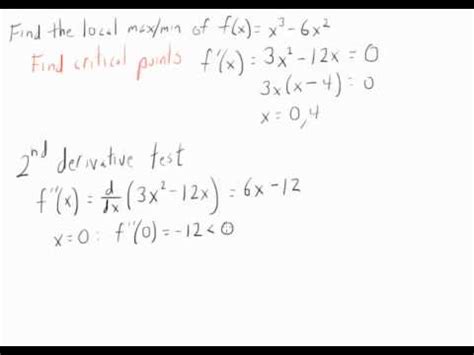 Find the local max/min of f(x) = x³ - 6x²
Find critical points f'(x) = 3x² - 12x = 0
3x(x-4) = 0
x = 0, 4
2nd derivative test
f''(x) = d/dx (3x² - 12x) = 6x - 12
x = 0 : f''(0) = -12 < 0